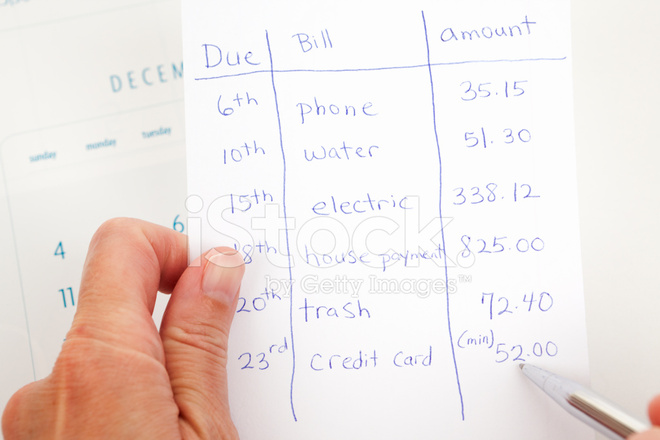 DECEM
sunday monday tuesday
4
6
11
Due Bill amount
6th phone 35.15
10th water 51.30
15th electric 338.12
18th house payment 825.00
20th trash 72.40
23rd credit card (min) 52.00
iStock.
by Getty Images™